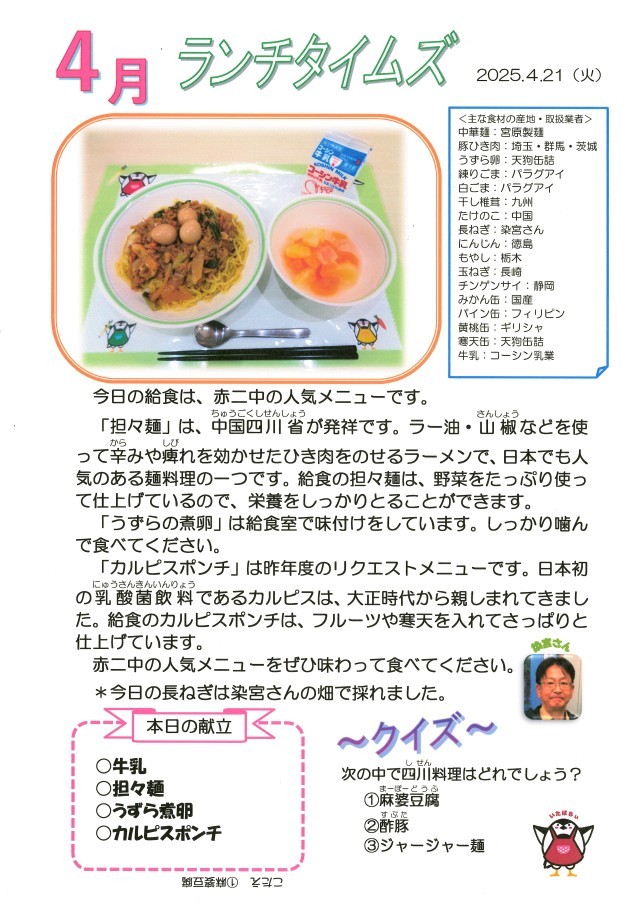 4月 ランチタイムズ 2025.4.21（火）
＜主な食材の産地・取扱業者＞
中華麺：宮原製麺
豚ひき肉：埼玉・群馬・茨城
うずら卵：天狗缶詰
練りごま：パラグアイ
白ごま：パラグアイ
干し椎茸：九州
たけのこ：中国
長ねぎ：染宮さん
にんじん：徳島
もやし：栃木
玉ねぎ：長崎
チンゲンサイ：静岡
みかん缶：国産
パイン缶：フィリピン
黄桃缶：ギリシャ
寒天缶：天狗缶詰
牛乳：コーシン乳業
コーシン牛乳
KOSHIN MILK
コーシン牛乳
今日の給食は、赤二中の人気メニューです。
ちゅうごくしせんしょう さんしょう
「担々麺」は、中国四川省が発祥です。ラー油・山椒などを使
から しび
って辛みや痺れを効かせたひき肉をのせるラーメンで、日本でも人
気のある麺料理の一つです。給食の担々麺は、野菜をたっぷり使っ
て仕上げているので、栄養をしっかりとることができます。
「うずらの煮卵」は給食室で味付けをしています。しっかり噛ん
で食べてください。
「カルピスポンチ」は昨年度のリクエストメニューです。日本初
にゅうさんきんいんりょう
の乳酸菌飲料であるカルピスは、大正時代から親しまれてきまし
た。給食のカルピスポンチは、フルーツや寒天を入れてさっぱりと
仕上げています。
赤二中の人気メニューをぜひ味わって食べてください。
＊今日の長ねぎは染宮さんの畑で採れました。
染宮さん
本日の献立
○牛乳
○担々麺
○うずら煮卵
○カルピスポンチ
～クイズ～
しせん
次の中で四川料理はどれでしょう？
まーぼーどうふ
①麻婆豆腐
すぶた
②酢豚
③ジャージャー麺
いたばるぃ
こたえ ①麻婆豆腐